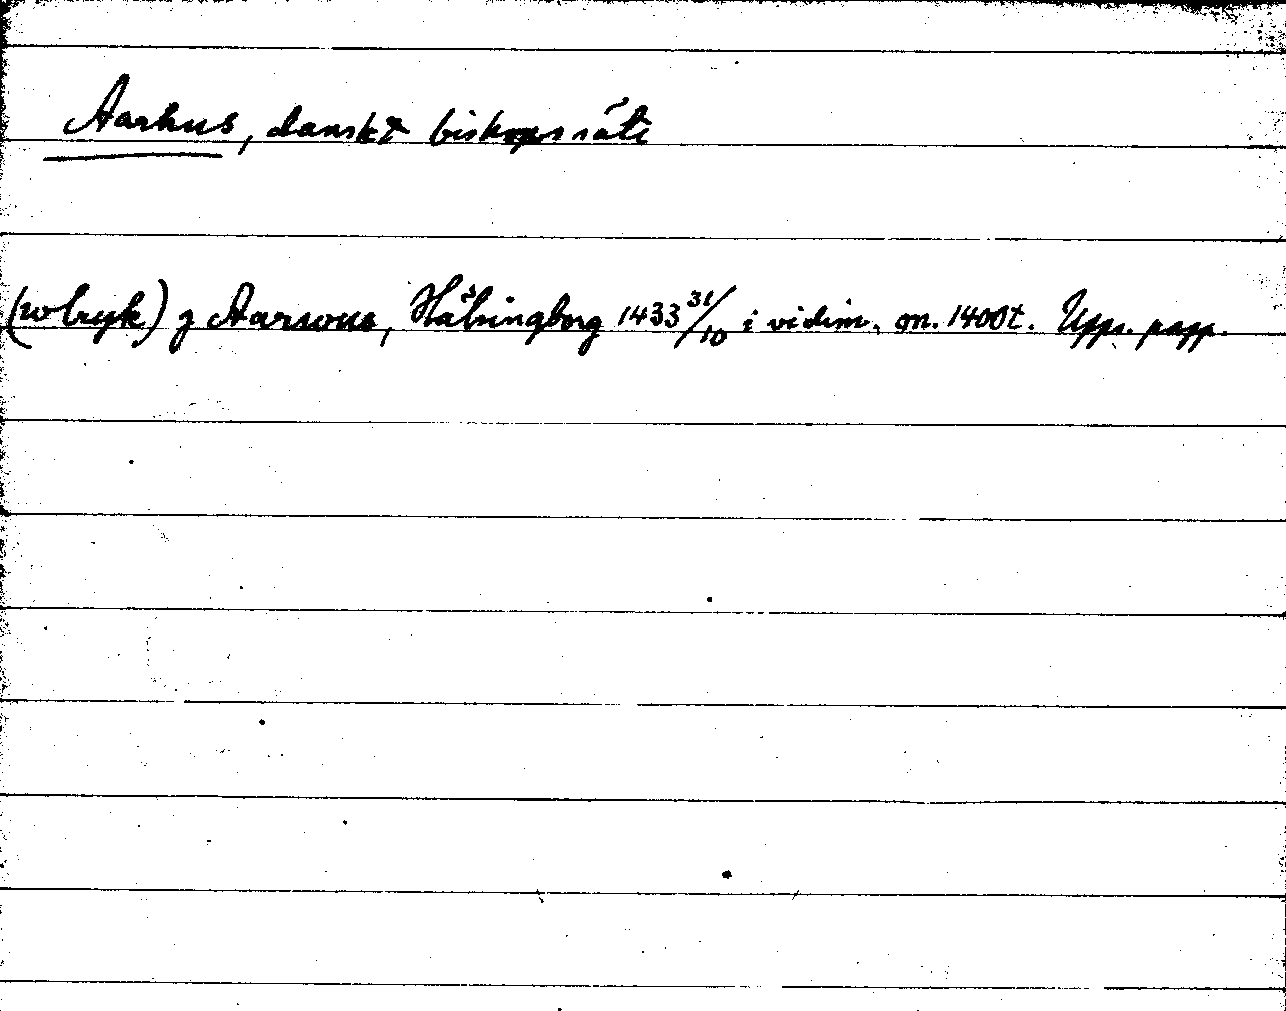 Aarhus, danskt biskopssäte
(wlryk) j Aarsous, Hälsingborg 1433 31/10 i vidim. m. 1400t. Upps. papp.